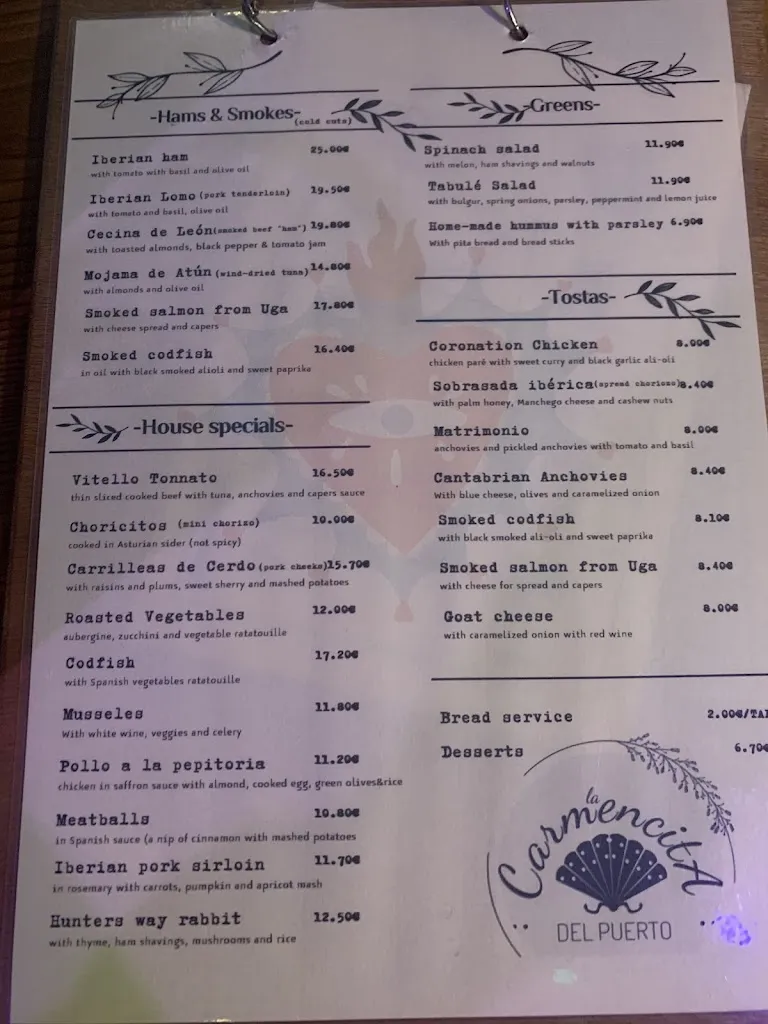 -Hams & Smokes-
(cold cuts)
Iberian ham 25.00€
with tomato with basil and olive oil
Iberian Lomo (pork tenderloin) 19.50€
with tomato and basil, olive oil
Cecina de León (smoked beef "ham") 19.80€
with toasted almonds, black pepper & tomato jam
Mojama de Atún (wind-dried tuna) 14.80€
with almonds and olive oil
Smoked salmon from Uga 17.80€
with cheese spread and capers
Smoked codfish 16.40€
in oil with black smoked alioli and sweet paprika
-House specials-
Vitello Tonnato 16.50€
thin sliced cooked beef with tuna, anchovies and capers sauce
Choricitos (mini chorizo) 10.00€
cooked in Asturian sider (not spicy)
Carrilleas de Cerdo (pork cheeks) 15.70€
with raisins and plums, sweet sherry and mashed potatoes
Roasted Vegetables 12.00€
aubergine, zucchini and vegetable ratatouille
Codfish 17.20€
with Spanish vegetables ratatouille
Musseles 11.80€
With white wine, veggies and celery
Pollo a la pepitoria 11.20€
chicken in saffron sauce with almond, cooked egg, green olives&rice
Meatballs 10.80€
in Spanish sauce (a nip of cinnamon with mashed potatoes
Iberian pork sirloin 11.70€
in rosemary with carrots, pumpkin and apricot mash
Hunters way rabbit 12.50€
with thyme, ham shavings, mushrooms and rice
-Greens-
Spinach salad 11.90€
with melon, ham shavings and walnuts
Tabulé Salad 11.90€
with bulgur, spring onions, parsley, peppermint and lemon juice
Home-made hummus with parsley 6.90€
With pita bread and bread sticks
-Tostas-
Coronation Chicken 8.00€
chicken paré with sweet curry and black garlic ali-oli
Sobrasada ibérica (spread chorizo) 8.40€
with palm honey, Manchego cheese and cashew nuts
Matrimonio 8.00€
anchovies and pickled anchovies with tomato and basil
Cantabrian Anchovies 8.40€
With blue cheese, olives and caramelized onion
Smoked codfish 8.10€
with black smoked ali-oli and sweet paprika
Smoked salmon from Uga 8.40€
with cheese for spread and capers
Goat cheese 8.00€
with caramelized onion with red wine
Bread service 2.00€/
Desserts 6.70€
la
CarmencitA
DEL PUERTO